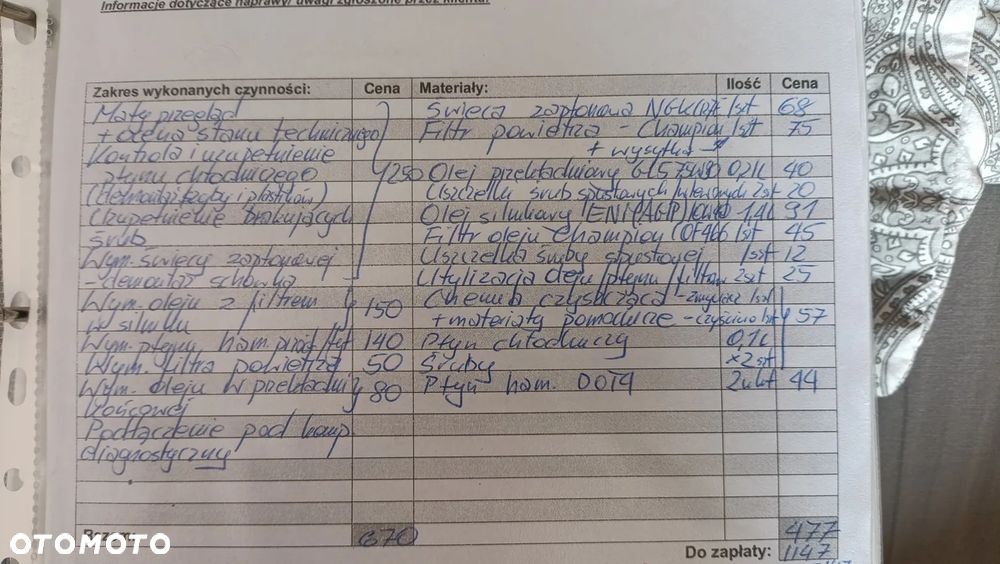 Informacje dotyczące naprawy/ uwagi zgłoszone przez klienta:
Zakres wykonanych czynności: Cena Materiały: Ilość Cena
Mały przegląd Świeca zapłonowa NGK 1szt 68
+ ocena stanu technicznego Filtr powietrza - Champion 1szt 75
Kontrola i uzupełnienie + wysyłka
płynu chłodniczego 250 Olej przekładniowy GL5 75W90 0,2L 40
(demontaż szyby i plastików) Uszczelki śrub spustowych 2szt 20
Uzupełnienie brakujących Olej silnikowy ENI (AGIP) 10W40 1,4L 91
śrub Filtr oleju Champion COF466 1szt 45
Wym. świecy zapłonowej Uszczelka śruby spustowej 1szt 12
- demontaż schowka Utylizacja oleju/płynu/filtra 2szt 25
Wym. oleju z filtrem 150 Chemia czyszcząca - zmywacz 1szt
w silniku + materiały pomocnicze - czyściwo 1szt 57
Wym. płynu ham. przód/tył 140 Płyn chłodniczy 0,1L
Wym. filtra powietrza 50 Śruby x2szt
Wym. oleju w przekładni 80 Płyn ham. DOT4 44
końcowej
Podłączenie pod komp.
diagnostyczny
Razem: 670 477
Do zapłaty: 1147
OTOMOTO